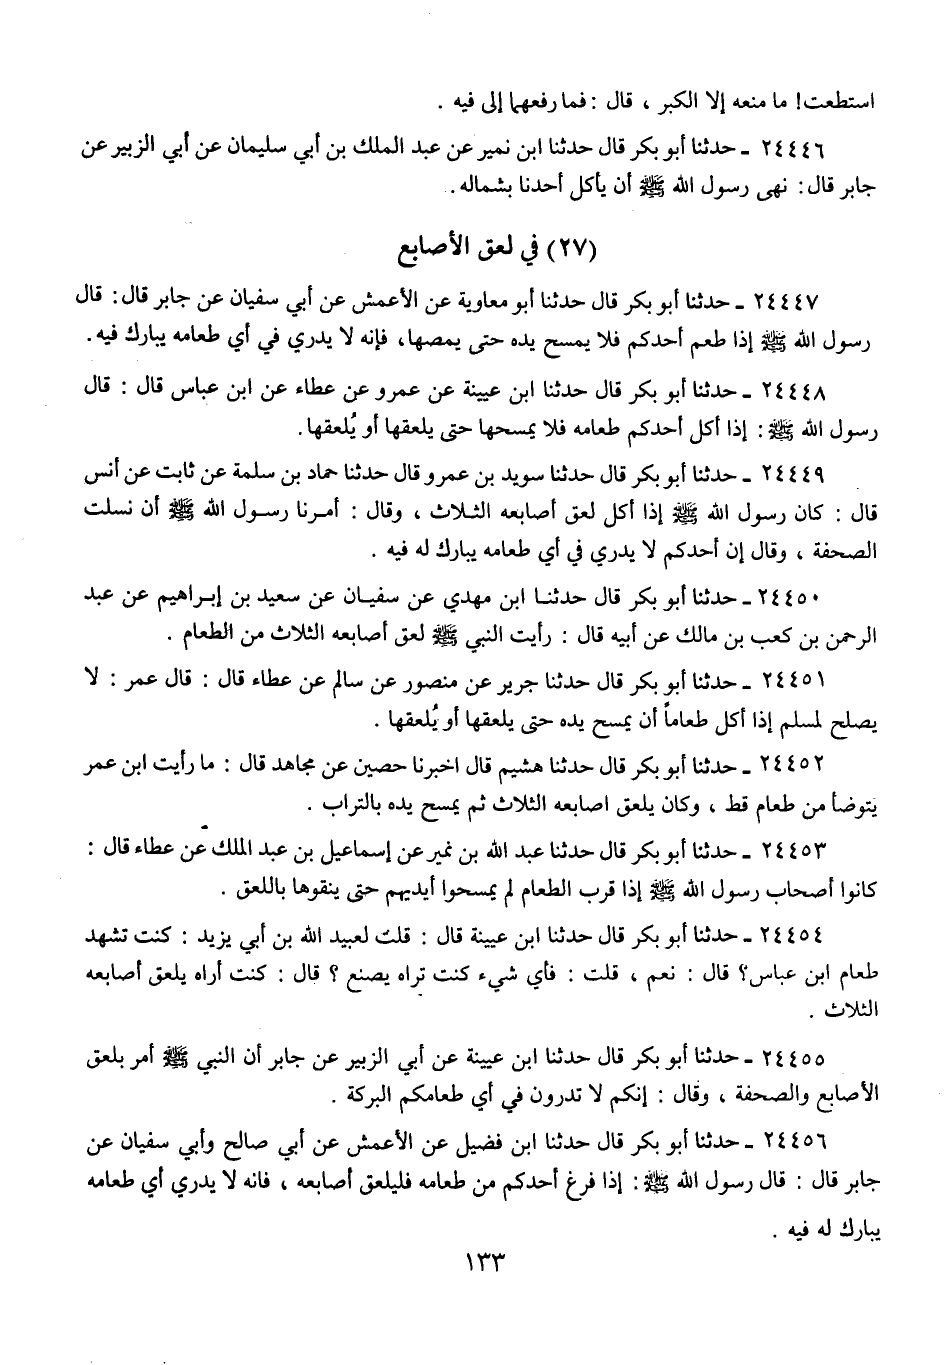 استطعت! ما منعه إلا الكبر ، قال : فما رفعها إلى فيه .
٢٤٤٤٦ ـ حدثنا أبو بكر قال حدثنا ابن نمير عن عبد الملك بن أبي سليمان عن أبي الزبير عن
جابر قال: نهى رسول الله ﷺ أن يأكل أحدنا بشماله.
(٢٧) في لعق الأصابع
٢٤٤٤٧ ـ حدثنا أبو بكر قال حدثنا أبو معاوية عن الأعمش عن أبي سفيان عن جابر قال: قال
رسول الله ﷺ إذا طعم أحدكم فلا يمسح يده حتى يمصها، فإنه لا يدري في أي طعامه يبارك فيه.
٢٤٤٤٨ ـ حدثنا أبو بكر قال حدثنا ابن عيينة عن عمرو عن عطاء عن ابن عباس قال : قال
رسول الله ﷺ: إذا أكل أحدكم طعامه فلا يمسحها حتى يلعقها أو يُلعقها.
٢٤٤٤٩ ـ حدثنا أبو بكر قال حدثنا سويد بن عمرو قال حدثنا حماد بن سلمة عن ثابت عن أنس
قال : كان رسول الله ﷺ إذا أكل لعق أصابعه الثلاث ، وقال : أمرنا رسول الله ﷺ أن نسلت
الصحفة ، وقال إن أحدكم لا يدري في أي طعامه يبارك له فيه .
٢٤٤٥٠ ـ حدثنا أبو بكر قال حدثنا ابن مهدي عن سفيان عن سعيد بن إبراهيم عن عبد
الرحمن بن كعب بن مالك عن أبيه قال : رأيت النبي ﷺ لعق أصابعه الثلاث من الطعام .
٢٤٤٥١ ـ حدثنا أبو بكر قال حدثنا جرير عن منصور عن سالم عن عطاء قال : قال عمر : لا
يصلح لمسلم إذا أكل طعاماً أن يمسح يده حتى يلعقها أو يُلعقها .
٢٤٤٥٢ ـ حدثنا أبو بكر قال حدثنا هشيم قال اخبرنا حصين عن مجاهد قال : ما رأيت ابن عمر
يتوضأ من طعام قط ، وكان يلعق اصابعه الثلاث ثم يمسح يده بالتراب .
٢٤٤٥٣ ـ حدثنا أبو بكر قال حدثنا عبد الله بن نمير عن إسماعيل بن عبد الملك عن عطاء قال :
كانوا أصحاب رسول الله ﷺ إذا قرب الطعام لم يمسحوا أيديهم حتى ينقوها باللعق .
٢٤٤٥٤ ـ حدثنا أبو بكر قال حدثنا ابن عيينة قال : قلت لعبيد الله بن أبي يزيد : كنت تشهد
طعام ابن عباس؟ قال : نعم ، قلت : فأي شيء كنت تراه يصنع ؟ قال : كنت أراه يلعق أصابعه
الثلاث .
٢٤٤٥٥ ـ حدثنا أبو بكر قال حدثنا ابن عيينة عن أبي الزبير عن جابر أن النبي ﷺ أمر بلعق
الأصابع والصحفة ، وقال : إنكم لا تدرون في أي طعامكم البركة .
٢٤٤٥٦ ـ حدثنا أبو بكر قال حدثنا ابن فضيل عن الأعمش عن أبي صالح وأبي سفيان عن
جابر قال : قال رسول الله ﷺ: إذا فرغ أحدكم من طعامه فليلعق أصابعه ، فانه لا يدري أي طعامه
يبارك له فيه .
١٣٣